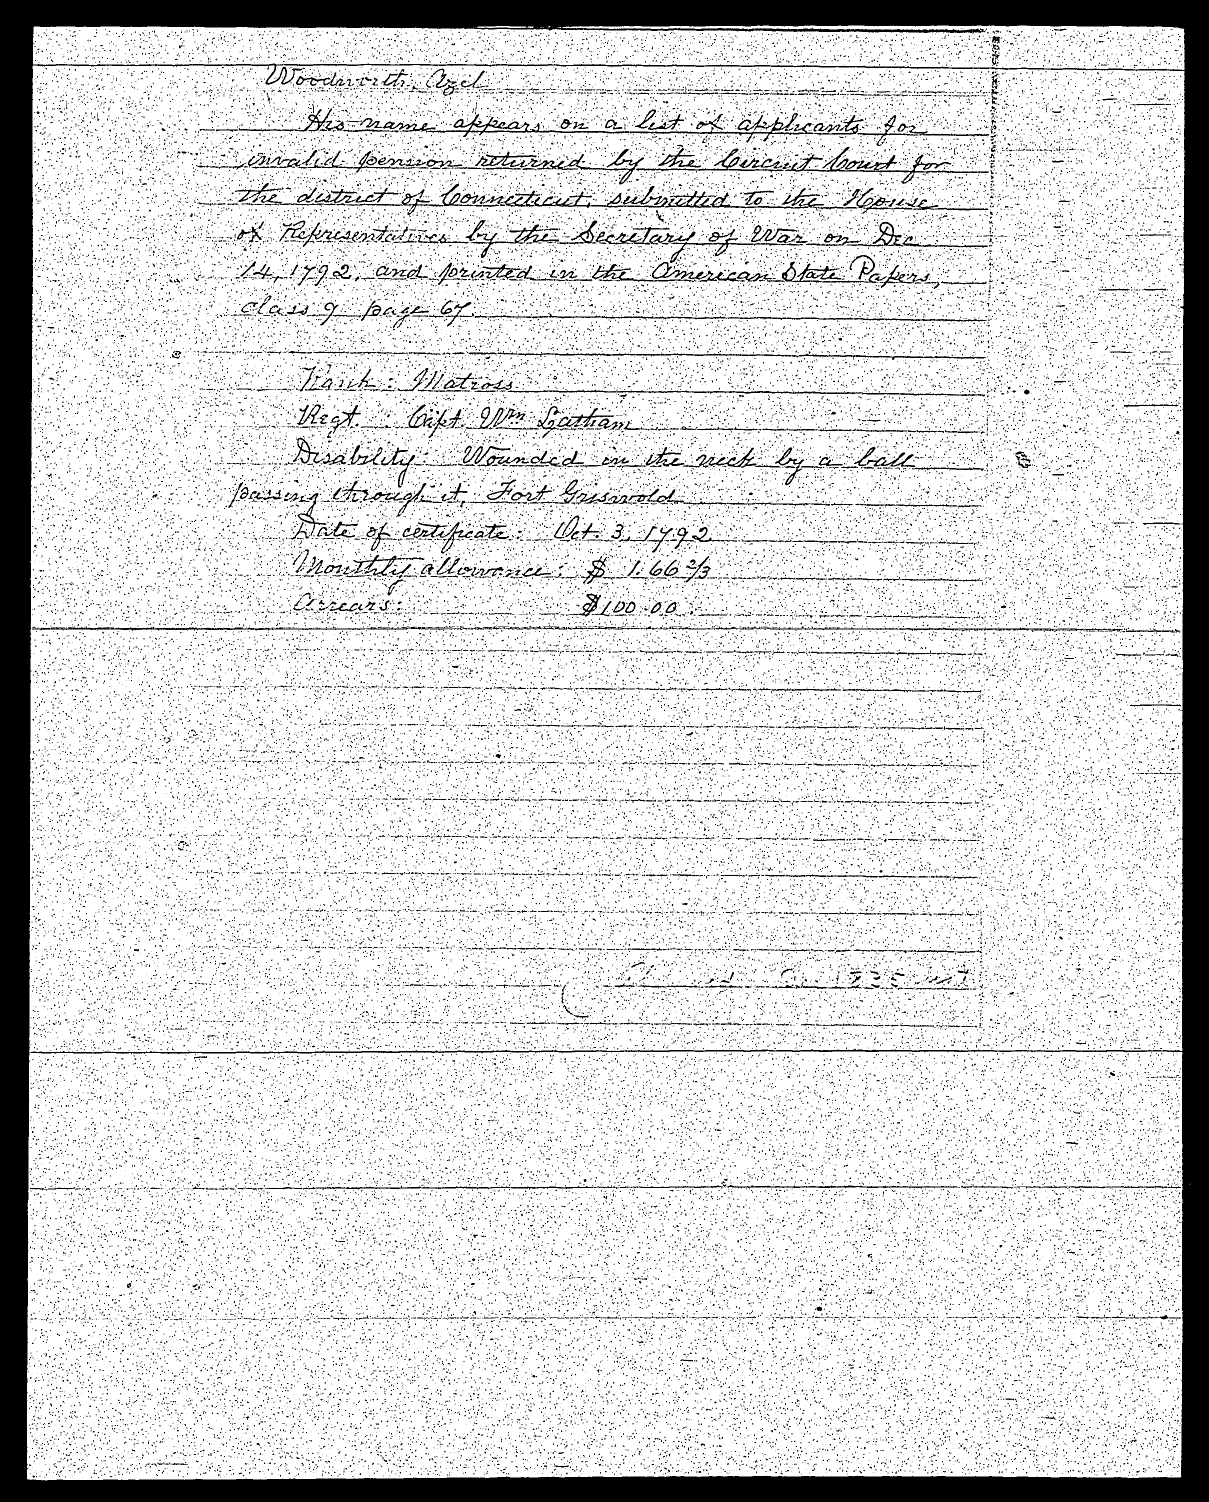 Woodworth, Azel
His name appears on a list of applicants for
invalid pension returned by the Circuit Court for
the district of Connecticut, submitted to the House
of Representatives by the Secretary of War on Dec
14, 1792, and printed in the American State Papers,
class 9 page 67.
Rank: Matross
Regt. : Capt. Wm Latham
Disability: Wounded in the neck by a ball
passing through it, Fort Griswold
Date of certificate: Oct. 3, 1792
Monthly allowance: $ 1.66 2/3
Arrears: $100.00